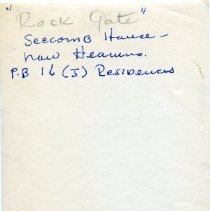 "Rock Gate"
Seecomb House -
now Hearns.
P.B 16 (J) Residences